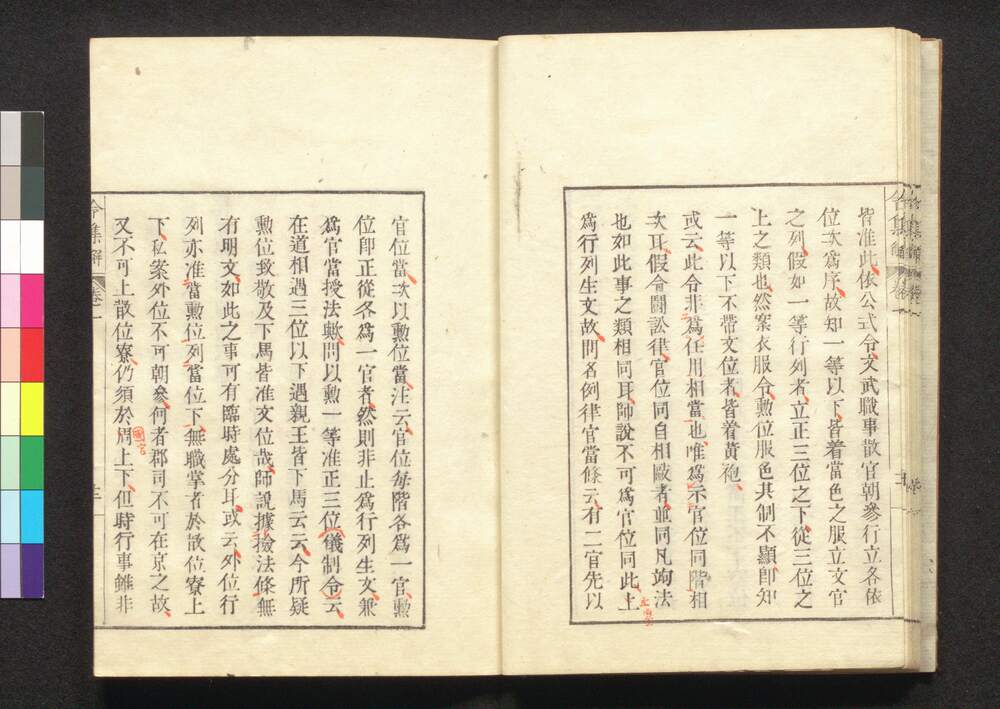 皆准此依公式令文武職事散官朝參行立各依
位次爲序故知一等以下皆着當色之服立文官
之列假如一等行列者立正三位之下從三位之
上之類也然案衣服令勲位服色其制不顯卽知
一等以下不帶文位者皆着黃袍
或云此令非爲任用相當也唯爲示官位同階相
次耳假令鬪訟律官位同自相毆者並同凡鬪法
也如此事之類相同耳師說不可爲官位同此上
爲行列生文故問名例律官當條云有二官先以
官位當次以勲位當注云官位每階各爲一官勲
位卽正從各爲一官者然則非止爲行列生文兼
爲官當授法歟問以勲一等准正三位儀制令云
在道相遇三位以下遇親王皆下馬云云今所疑
勲位致敬及下馬皆准文位哉師說據撿法條無
有明文如此之事可有臨時處分耳或云外位行
列亦准當勲位列當位下無職掌者於散位寮上
下私案外位不可朝參何者郡司不可在京之故
又不可上散位寮仍須於周上下但時行事雖非
國
令集解
卷一